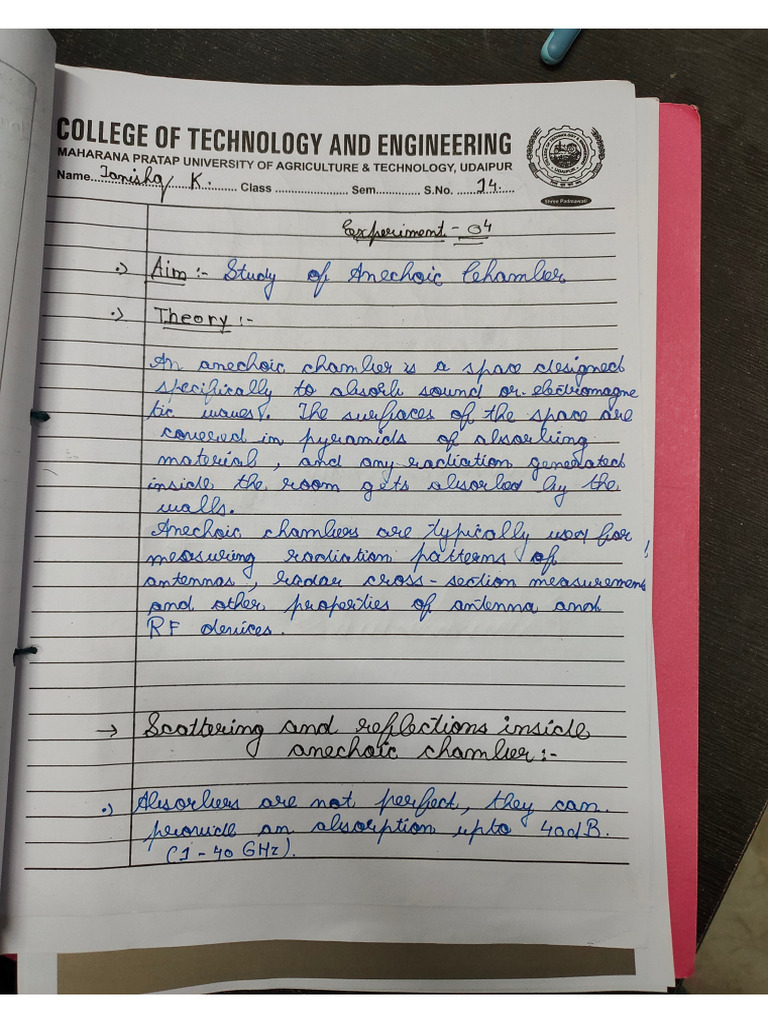 COLLEGE OF TECHNOLOGY AND ENGINEERING
MAHARANA PRATAP UNIVERSITY OF AGRICULTURE & TECHNOLOGY, UDAIPUR
Name....Tanishq K.... Class .................... Sem............ S.No. ....14....
Shree Padmawati
Experiment - 04
Aim :- Study of Anechoic Chamber
Theory :-
An anechoic chamber is a space designed
specifically to absorb sound or electromagne
tic waves. The surfaces of the space are
covered in pyramids of absorbing
material, and any radiation generated
inside the room gets absorbed by the
walls.
Anechoic chambers are typically used for
measuring radiation patterns of
antennas, radar cross-section measurement
and other properties of antenna and
RF devices.
→ Scattering and reflections inside
anechoic chamber :-
Absorbers are not perfect, they can
provide an absorption upto 40dB.
(1-40 GHz).